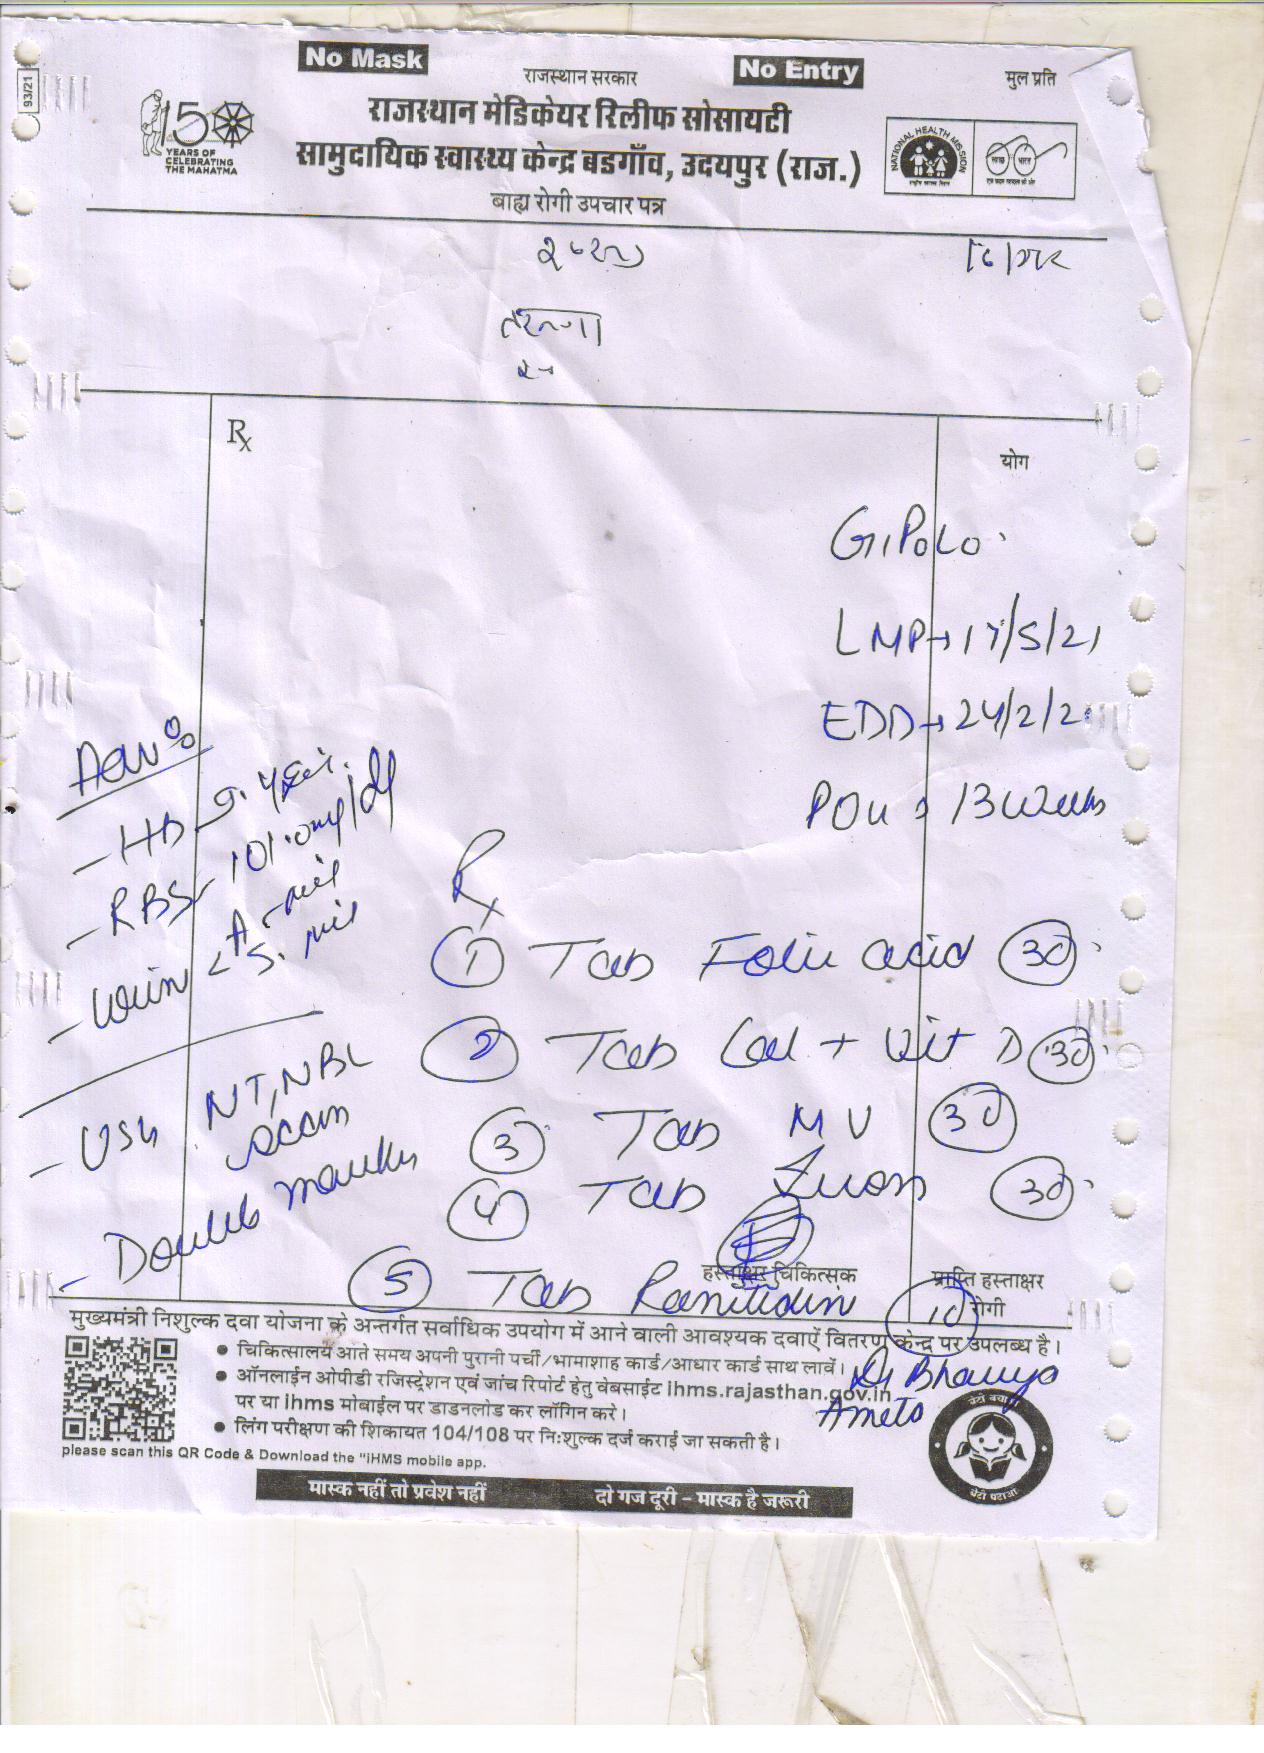 93/21
No Mask
No Entry
राजस्थान सरकार
मुल प्रति
राजस्थान मेडिकेयर रिलीफ सोसायटी
सामुदायिक स्वास्थ्य केन्द्र बडगाँव, उदयपुर (राज.)
बाह्य रोगी उपचार पत्र
150
YEARS OF
CELEBRATING
THE MAHATMA
NATIONAL HEALTH MISSION
Rx
योग
G1P0L0
LMP→17/5/21
EDD→24/2/2
13 weeks
- HB
- RBS - 101.0mg/dl
- Urin < A - nil
S. nil
- USG NT, NBL
scan
- Double marker
Rx
① Tab Folic acid 30
② Tab Cal + Vit D 30
③ Tab MV 30
④ Tab Iron 30
हस्ताक्षर चिकित्सक
प्राप्ति हस्ताक्षर
रोगी
⑤ Tab Ranitidin 10
मुख्यमंत्री निशुल्क दवा योजना के अन्तर्गत सर्वाधिक उपयोग में आने वाली आवश्यक दवाऐं वितरण केन्द्र पर उपलब्ध है।
• चिकित्सालय आते समय अपनी पुरानी पर्ची/भामाशाह कार्ड/आधार कार्ड साथ लावें।
• ऑनलाईन ओपीडी रजिस्ट्रेशन एवं जांच रिपोर्ट हेतु वेबसाईट ihms.rajasthan.gov.in
पर या ihms मोबाईल पर डाडनलोड कर लॉगिन करे।
• लिंग परीक्षण की शिकायत 104/108 पर निःशुल्क दर्ज कराई जा सकती है।
Dr Bhavya
Ameta
please scan this QR Code & Download the "iHMS mobile app.
मास्क नहीं तो प्रवेश नहीं
दो गज दूरी – मास्क है जरूरी